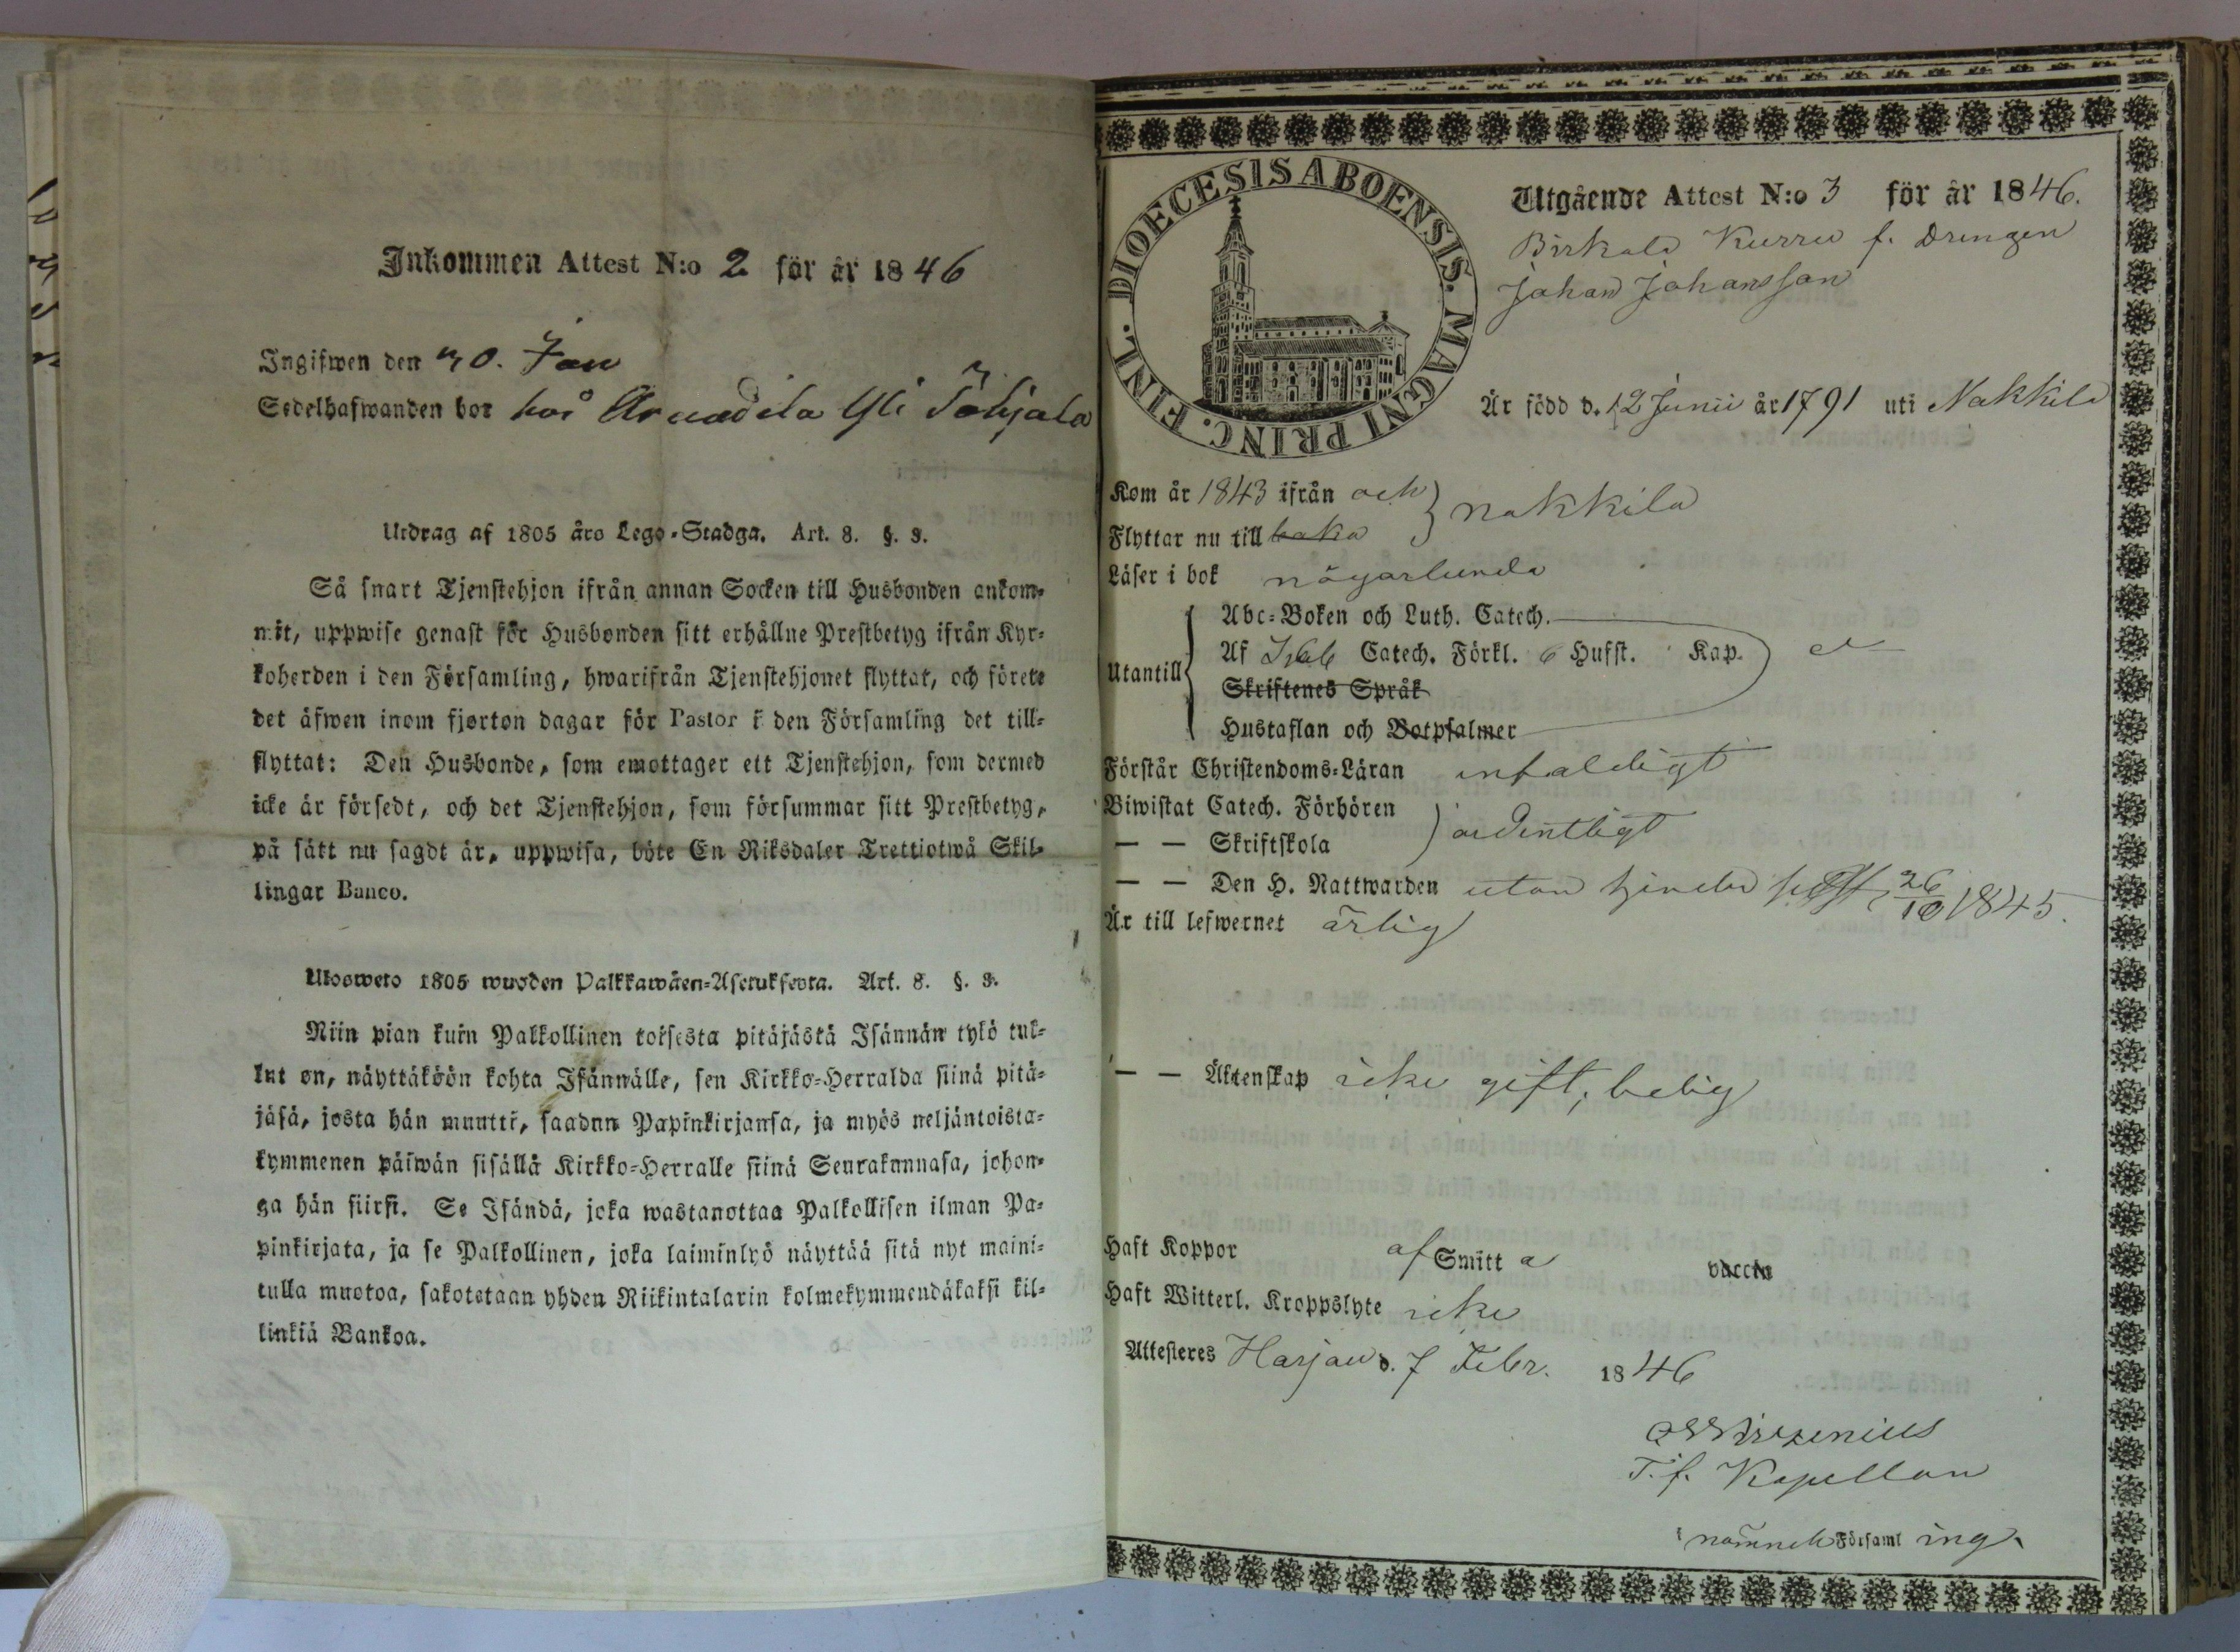 Inkommen Attest N:o 2 för år 1846
Ingifwen den 30. Jan
Sedelhafwanden bor hos Arvadila Yli Töhjala
Utdrag af 1805 års Lego-Stadga. Art. 8. §. 3.
Så snart Tjenstehjon ifrån annan Socken till Husbonden ankom-
mit, uppwise genast för Husbonden sitt erhållne Prestbetyg ifrån Kyr-
koherden i den Församling, hwarifrån Tjenstehjonet flyttat, och förete
det äfwen inom fjorton dagar för Pastor i den Församling det till-
flyttat: Den Husbonde, som emottager ett Tjenstehjon, som dermed
icke är försedt, och det Tjenstehjon, som försummar sitt Prestbetyg,
på sätt nu sagdt är, uppwisa, böte En Riksdaler Trettiotwå Skil-
lingar Banco.
Ulosweto 1805 wuoden Palkkawäen-Asetuksesta. Art. 8. §. 3.
Niin pian kuin Palkollinen toisesta pitäjästä Isännän tykö tul-
lut on, näyttäköön kohta Isännälle, sen Kirkko-Herralda siinä pitä-
jäsä, josta hän muutti, saadun Papinkirjansa, ja myös neljäntoista-
kymmenen päiwän sisällä Kirkko-Herralle siinä Seurakunnasa, johon-
ga hän siirsi. Se Isändä, joka wastanottaa Palkollisen ilman Pa-
pinkirjata, ja se Palkollinen, joka laiminlyö näyttää sitä nyt maini-
tulla muotoa, sakotetaan yhden Riikintalarin kolmekymmendäkaksi kil-
linkiä Bankoa.
DIOECESIS ABOENSIS. MAGNI PRINC. FINL.
Utgående Attest N:o 3 för år 1846.
Birkala Kurru f. Drengen
Johan Johansson
Är född d. 12 Junii år 1791 uti Nakkila
Kom år 1843 ifrån och } Nakkila
Flyttar nu till baka
Läser i bok någorlunda
Utantill
Abc-Boken och Luth. Catech.
Af Catech. Förkl. 6 Hufst. Kap.
Skriftenes Språk
Hustaflan och Botpsalmer
Förstår Christendoms-Läran enfaldigt
Biwistat Catech. Förhören
— — Skriftskola } ordentligt
— — Den H. Nattwarden utan hinder sist 26/10 1845.
Är till lefwernet ärlig
— — Äktenskap icke gift; ledig
Haft Koppor af Smitt a vaccin
Haft Witterl. Kroppslyte icke
Attesteres Harjau d. 7 Febr. 1846
T. f. Kapellan
i nämnde Församling.